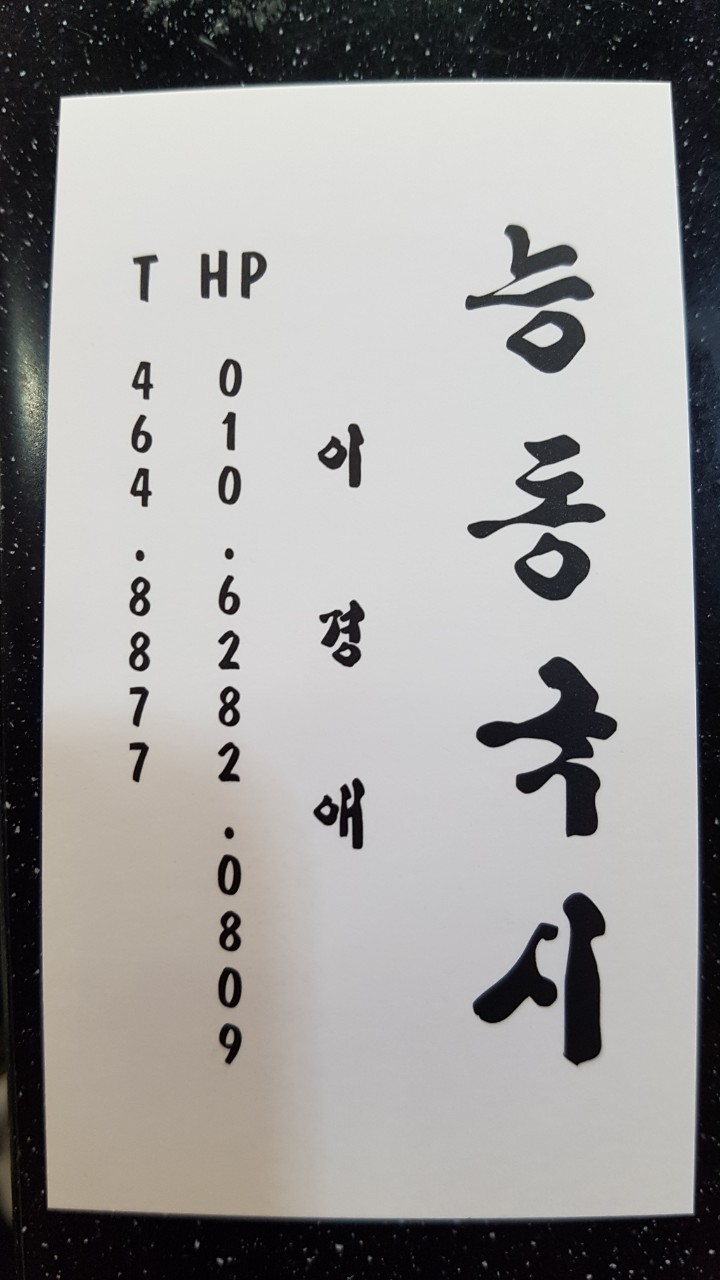 능동국시
이경애
HP 010.6282.0809
T 464.8877